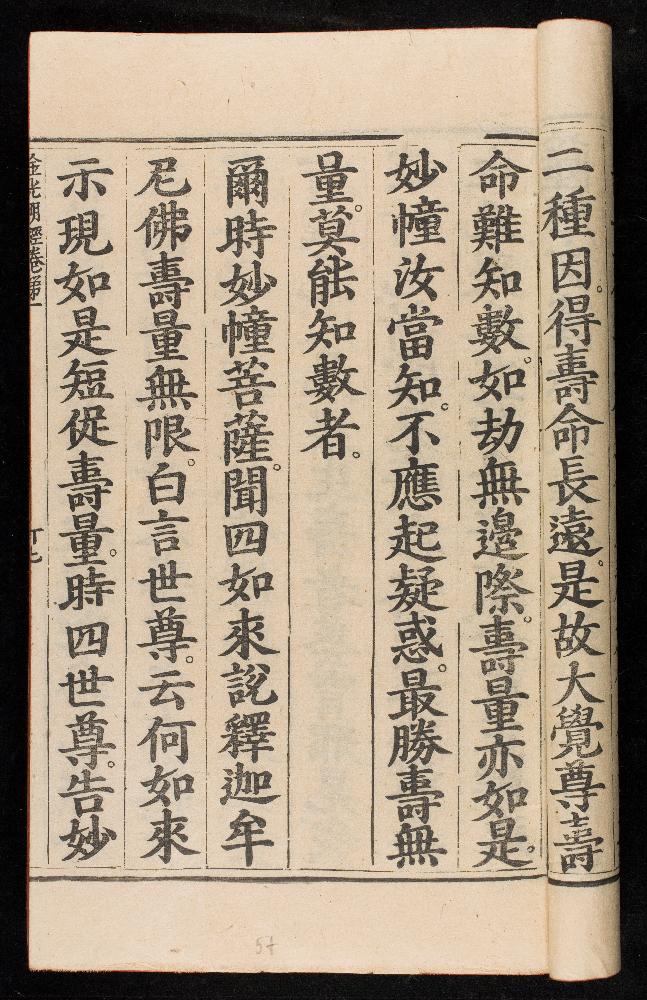 二種因。得壽命長遠。是故大覺尊壽
命難知數。如劫無邊際。壽量亦如是。
妙幢汝當知。不應起疑惑。最勝壽無
量。莫能知數者。
爾時妙幢菩薩。聞四如來說釋迦牟
尼佛壽量無限。白言世尊。云何如來
示現如是短促壽量。時四世尊。告妙
金光明經卷第一
十七
54